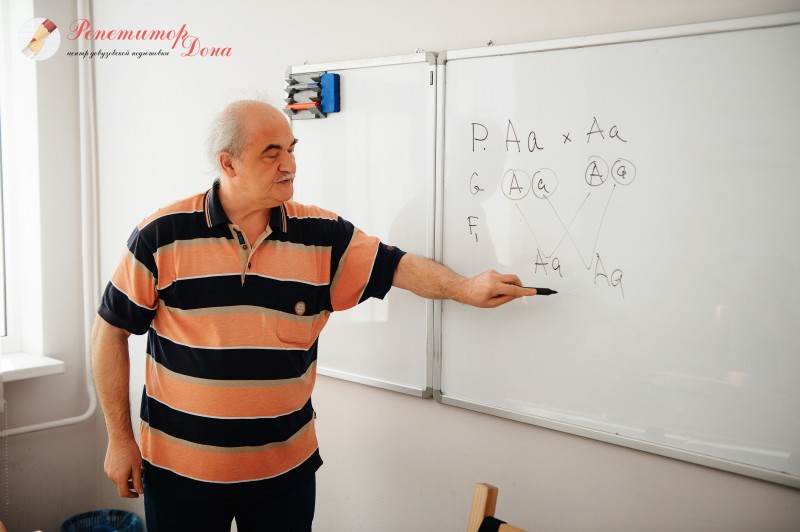 Репетитор
Дона
центр довузовской подготовки
P. Aa x Aa
G A a A a
F1
Aa Aa